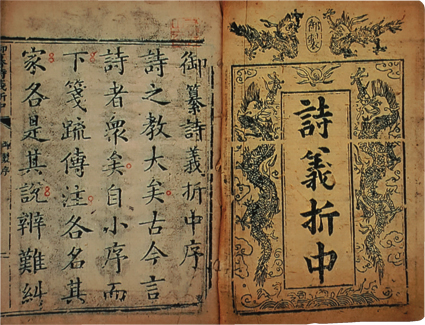 御製
詩義折中
御纂詩義折中序
詩之教大矣古今言
詩者衆矣自小序而
下箋疏傳注各名其
家各是其說辨難糾